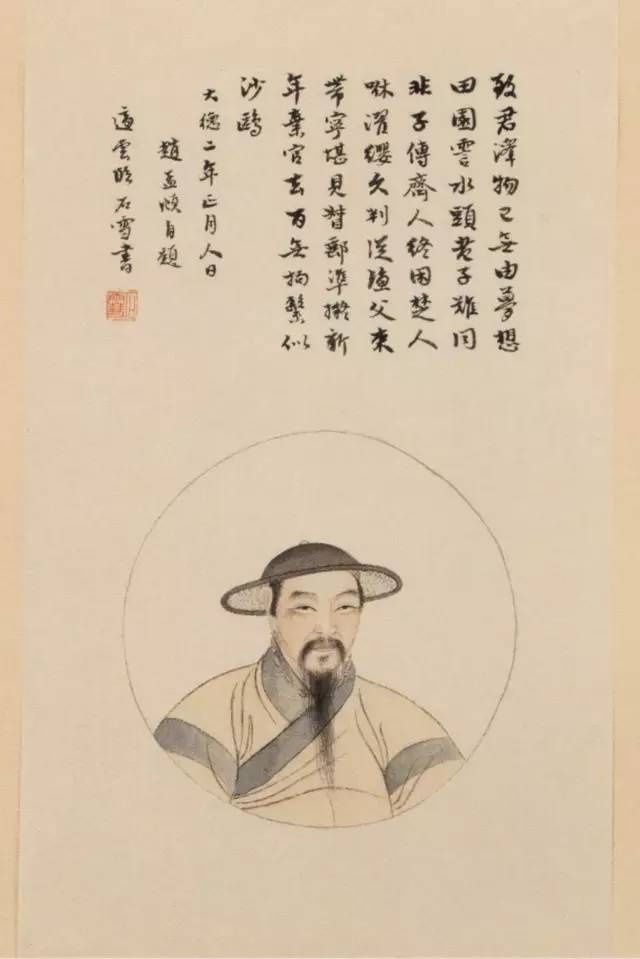 致君澤物已無由夢想
田園霅水頭老子難同
非子傳齊人終困楚人
咻濯纓久判從漁父束
帶寧堪見督郵準擬新
年棄官去百無拘繫似
沙鷗
大德二年正月人日
趙孟頫自題
適雲臨石雪書